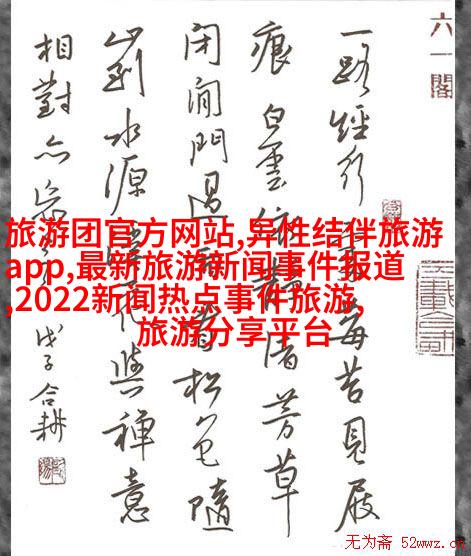 六一閣
一路經行莓苔見屐
痕白雲依靜渚芳草
閉閒門過看松色隨
山到水源花與禪意
相對亦
戊子合耕
旅游团官方网站,异性结伴旅游
app,最新旅游新闻事件报道
,2022新闻热点事件旅游,
旅游分享平台
无为斋 52wwz.cn